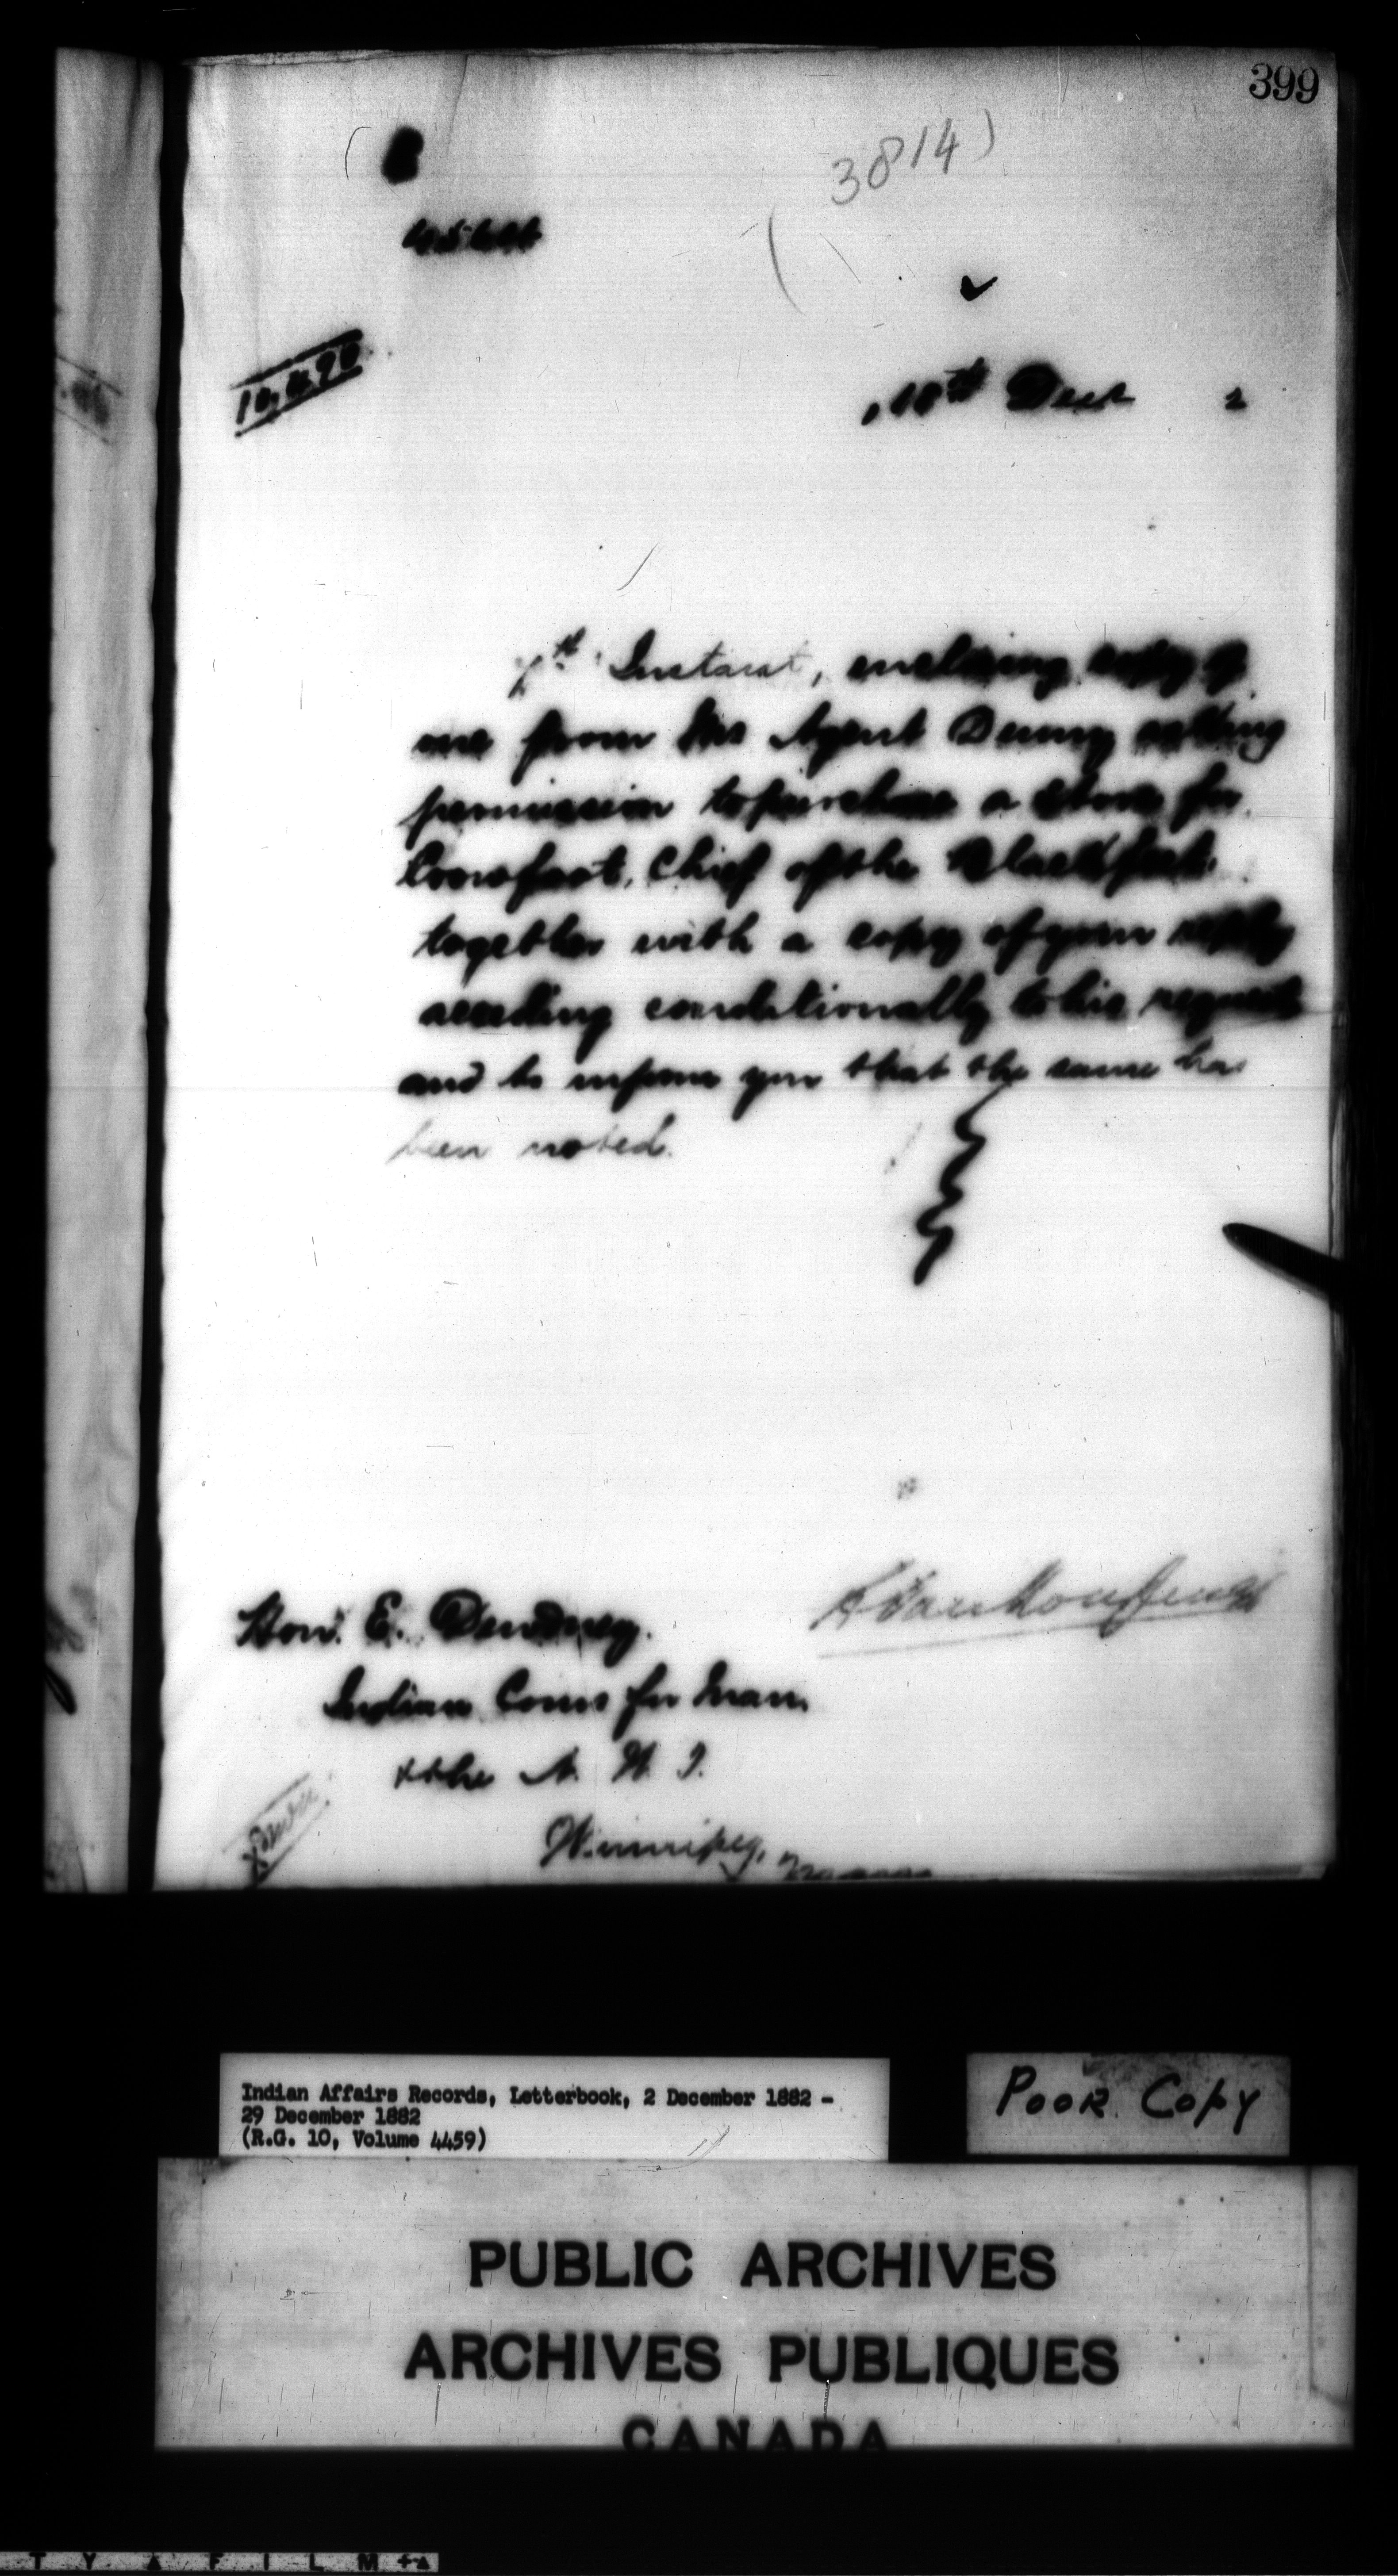 399
3814
18th Decr 2
7th Instant, enclosing copy of
one from Mr Agent Denny asking
permission to purchase a stove for
Crowfoot, Chief of the Blackfeet,
together with a copy of your reply
acceding conditionally to his request
and to inform you that the same has
been noted.
L Vankoughnet
Hon. E. Dewdney.
Indian Comr for Man.
& the N. W. T.
Winnipeg,
Indian Affairs Records, Letterbook, 2 December 1882 -
29 December 1882
(R.G. 10, Volume 4459)
POOR COPY
PUBLIC ARCHIVES
ARCHIVES PUBLIQUES
CANADA